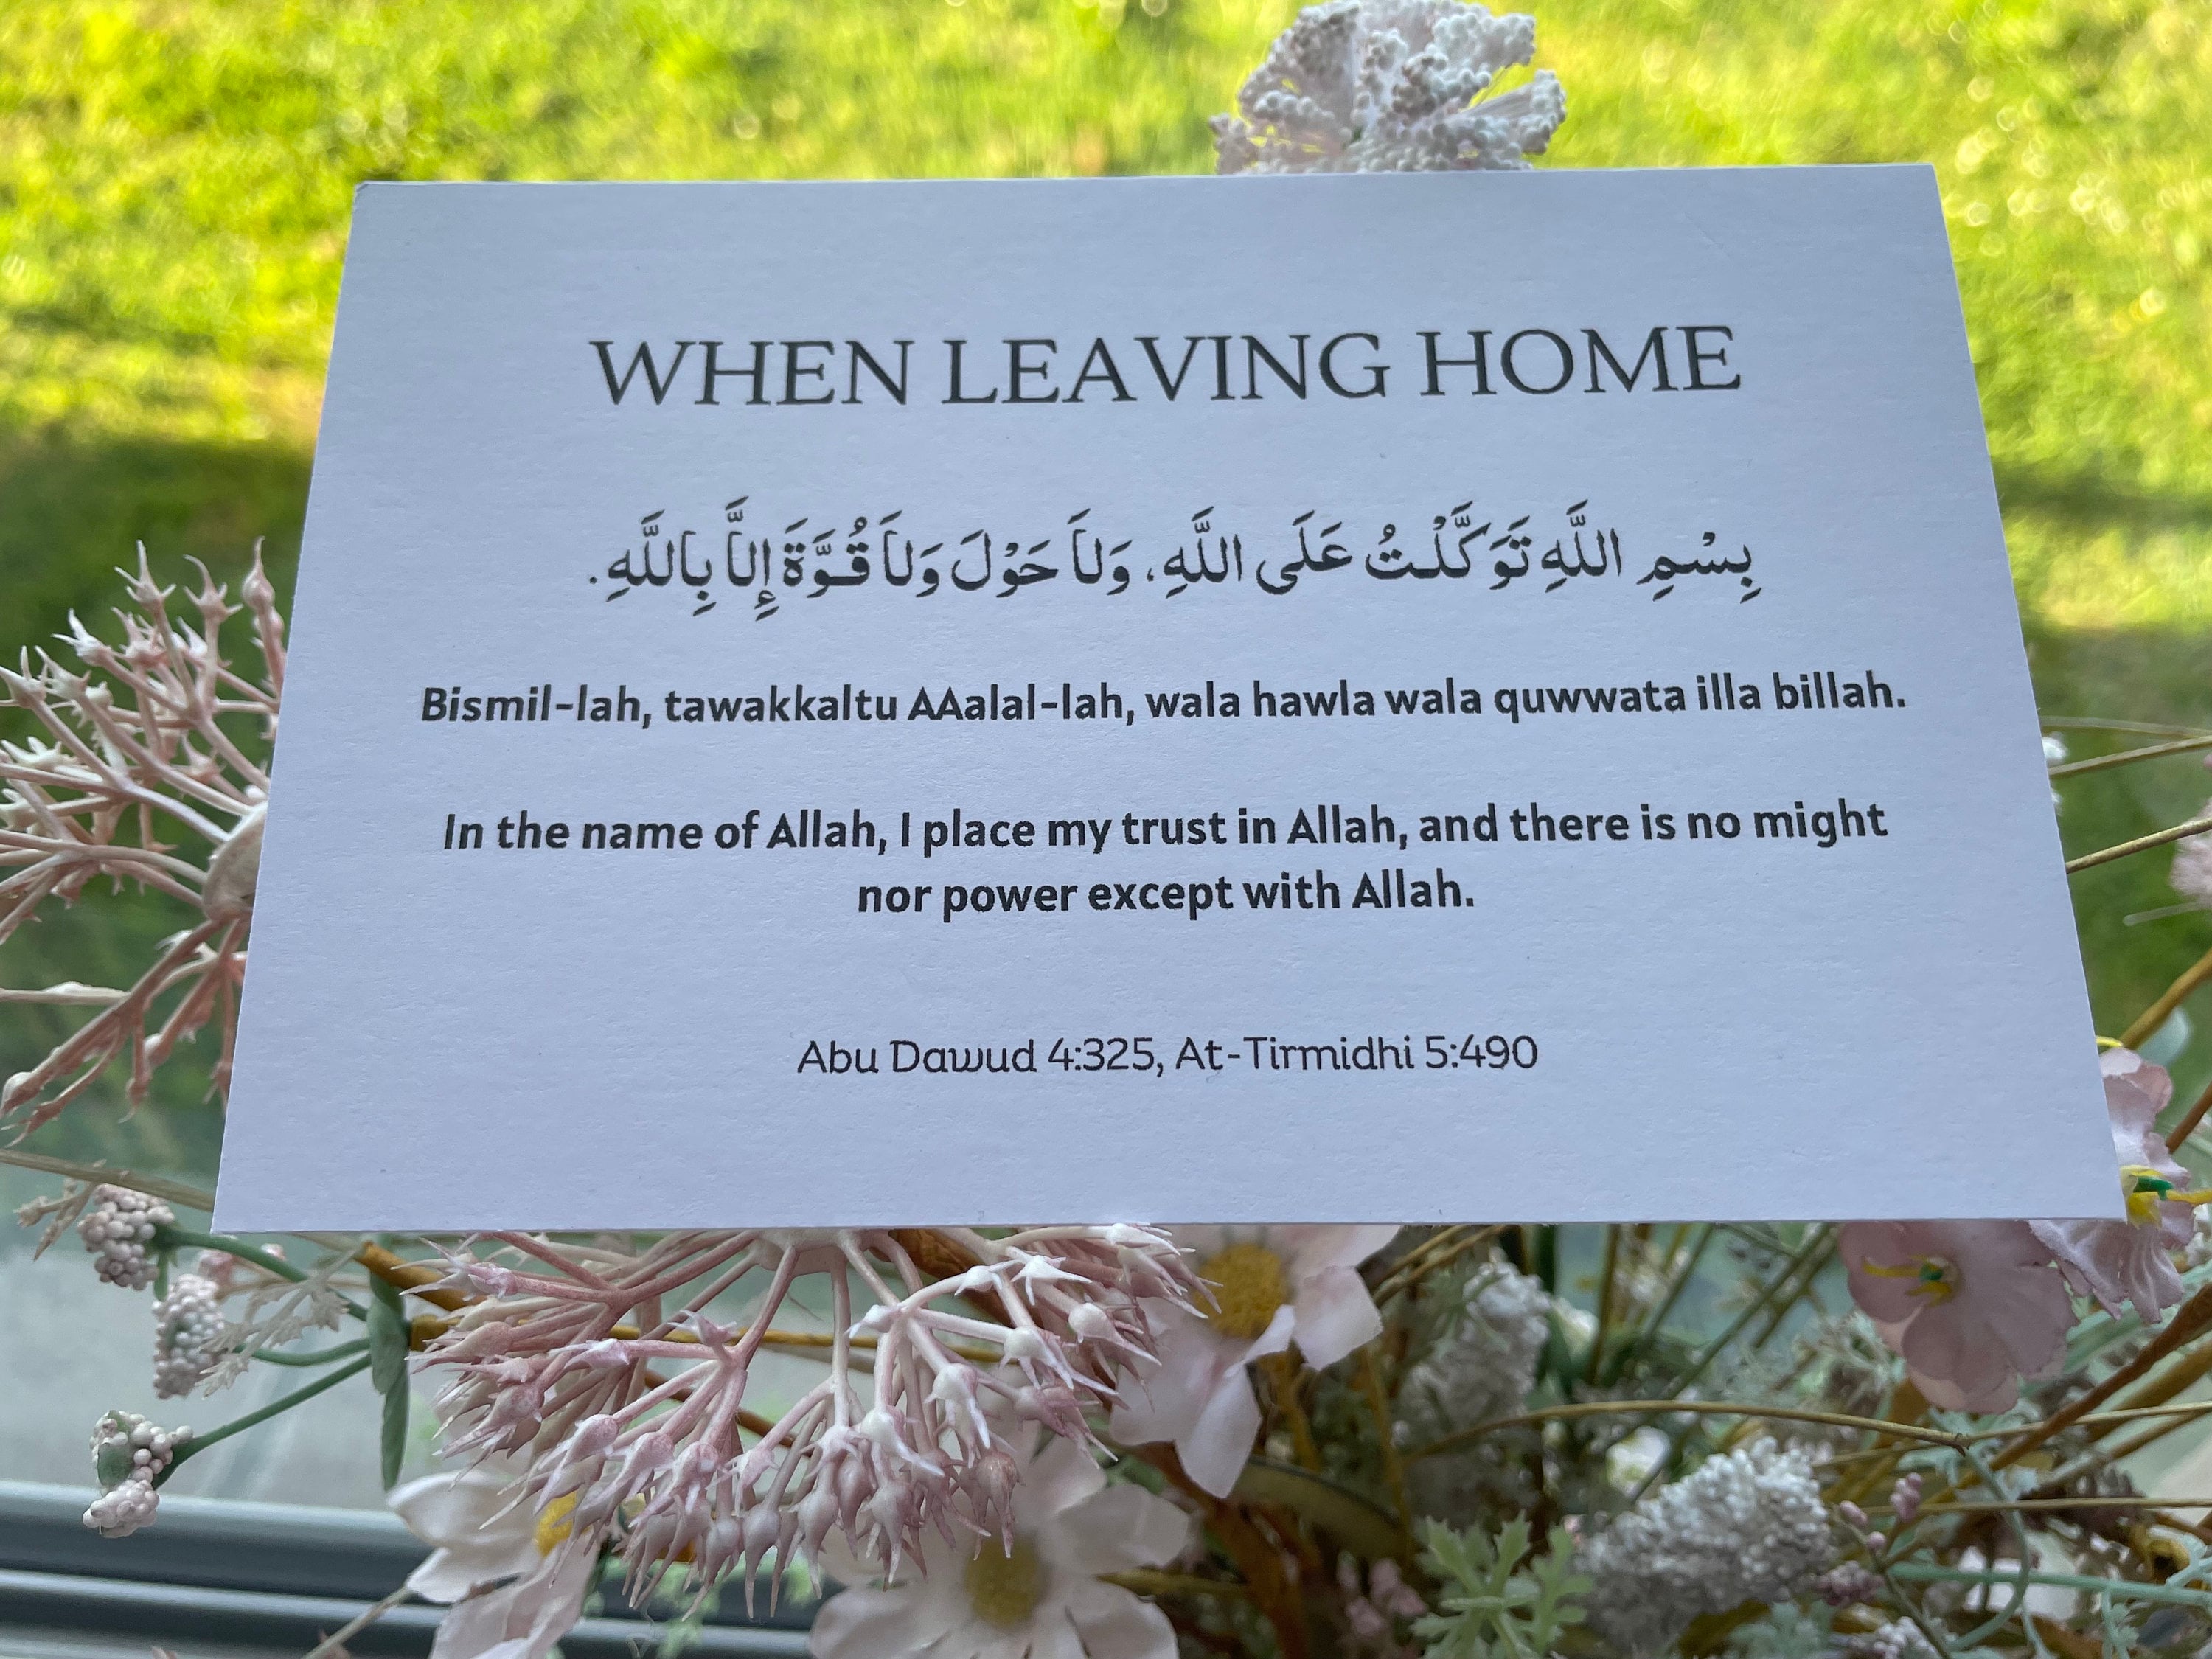 WHEN LEAVING HOME
بِسْمِ اللَّهِ تَوَكَّلْتُ عَلَى اللَّهِ، وَلاَ حَوْلَ وَلاَ قُوَّةَ إِلاَّ بِاللَّهِ.
Bismil-lah, tawakkaltu AAalal-lah, wala hawla wala quwwata illa billah.
In the name of Allah, I place my trust in Allah, and there is no might
nor power except with Allah.
Abu Dawud 4:325, At-Tirmidhi 5:490